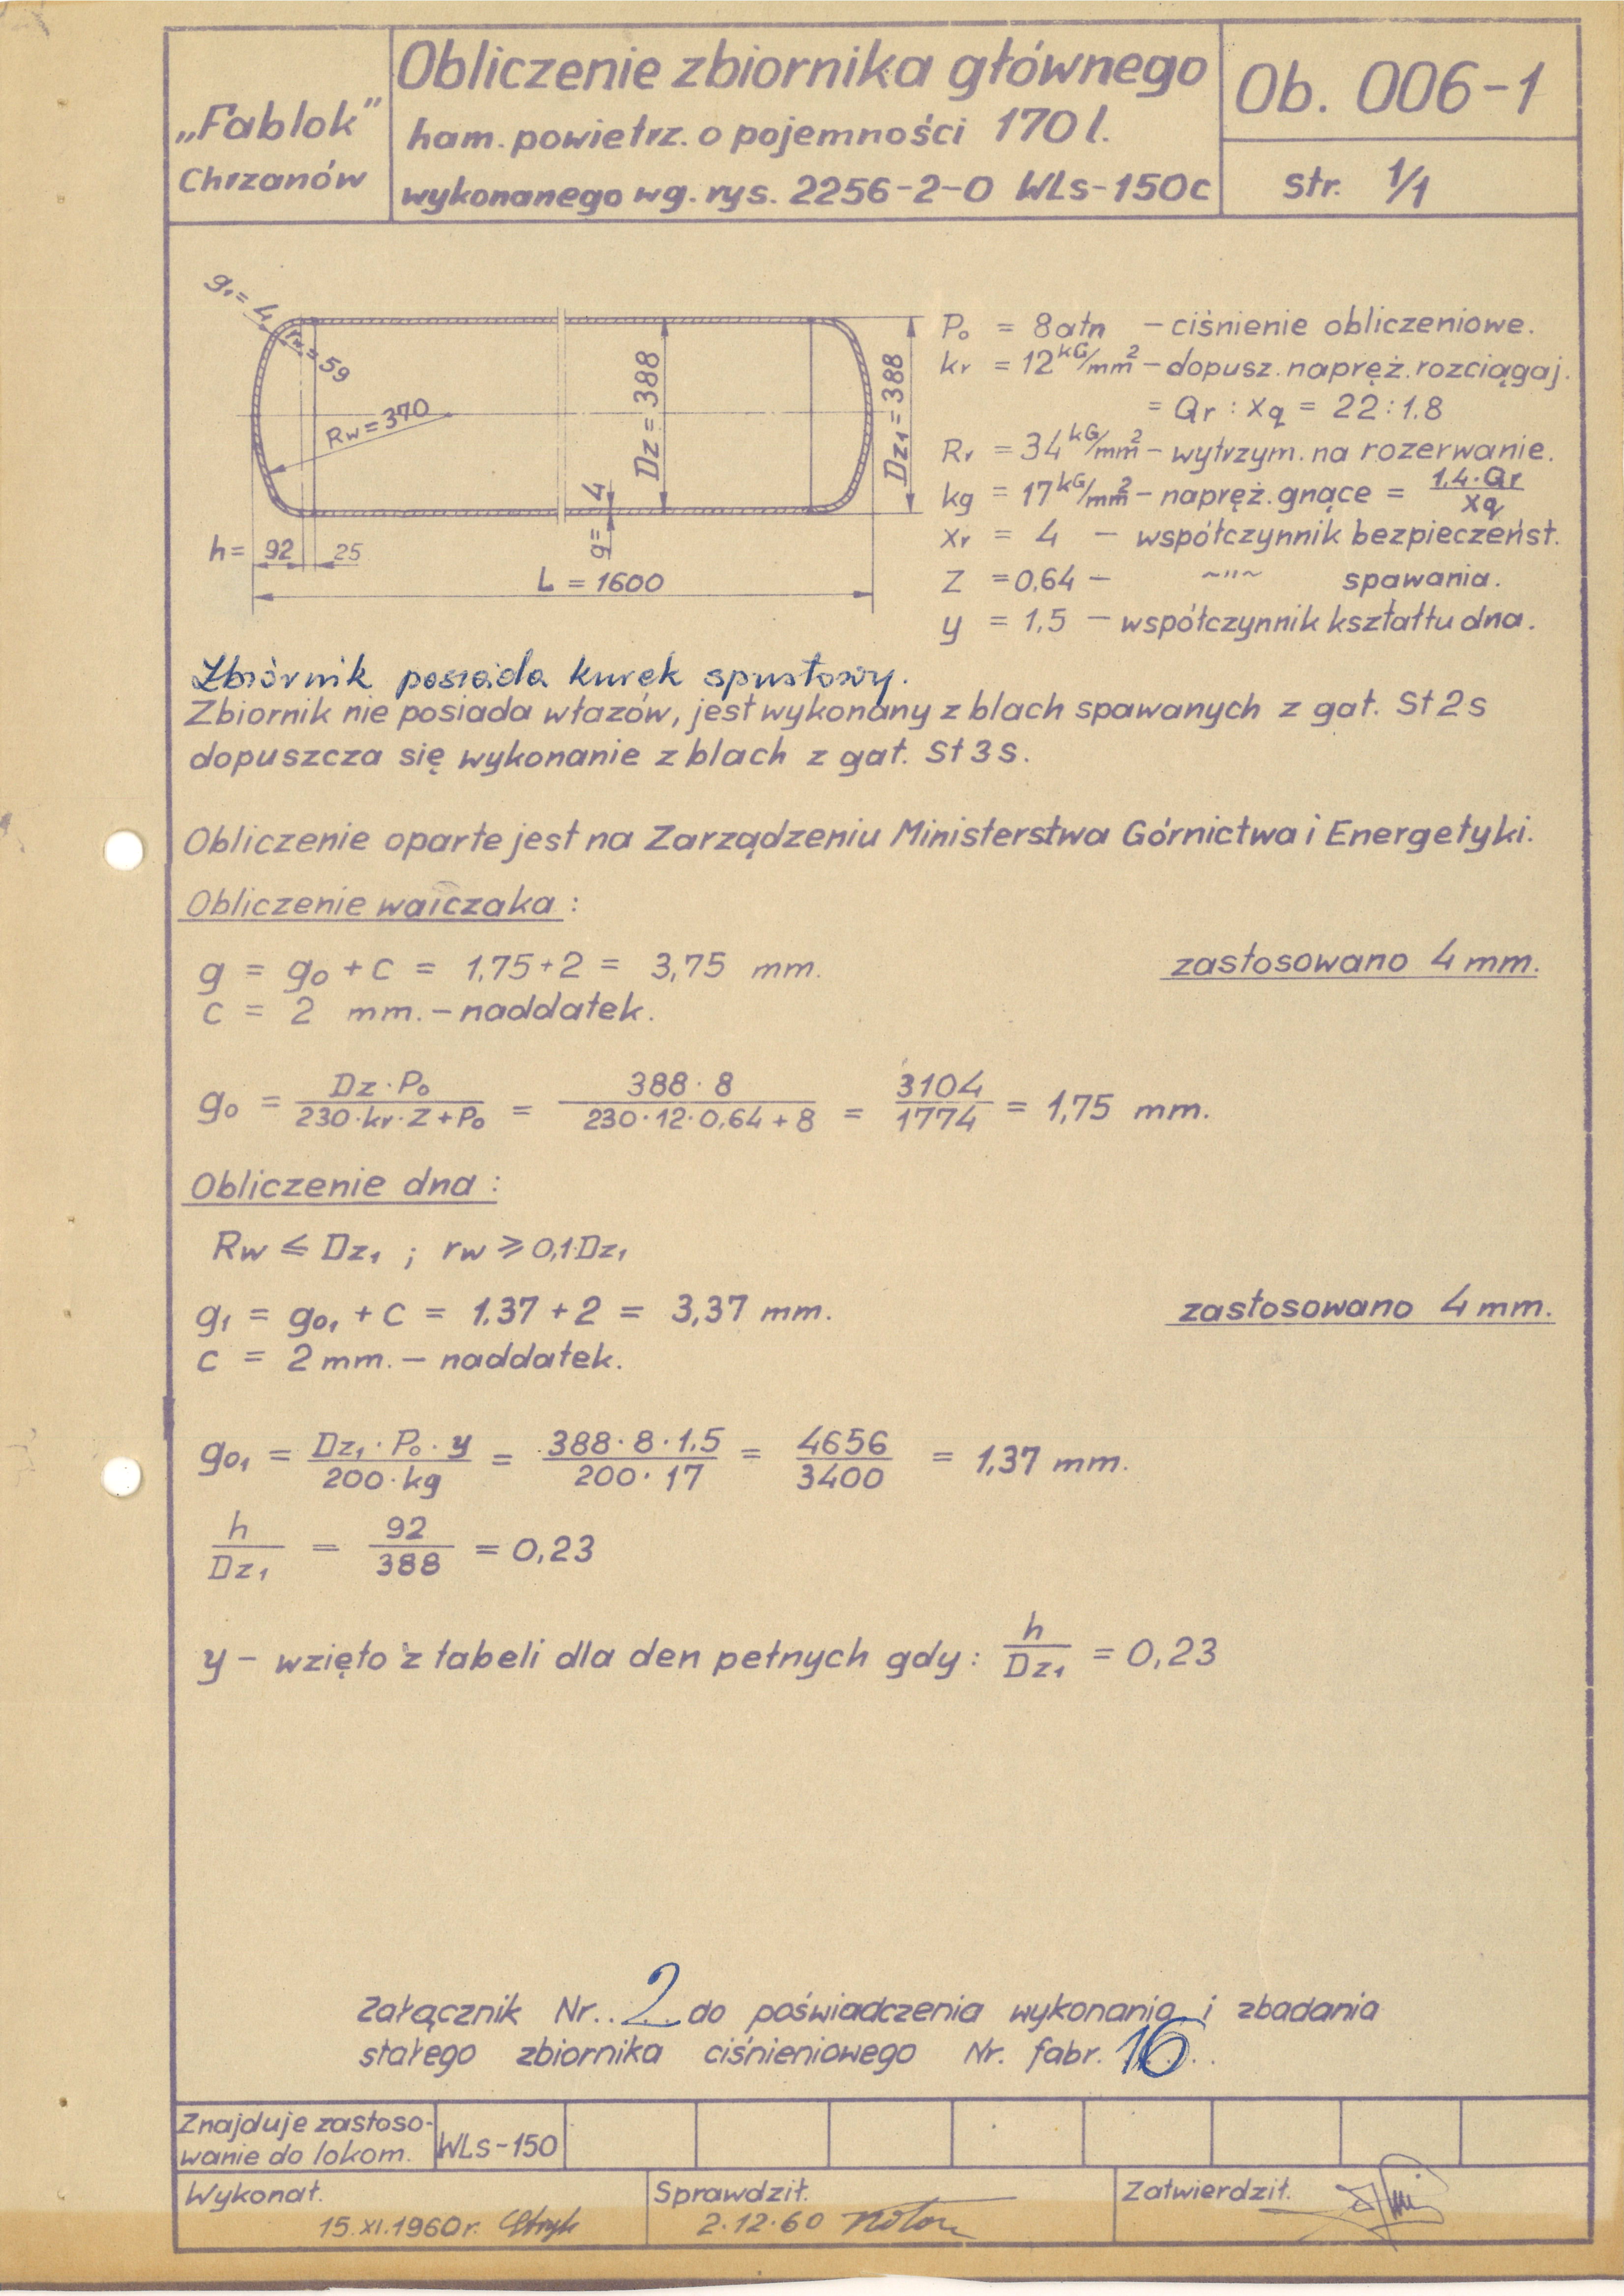 „Fablok"
Chrzanów
Obliczenie zbiornika głównego
ham. powietrz. o pojemności 170 l.
wykonanego wg. rys. 2256-2-0 WLs-150c
Ob. 006-1
str. 1/1
g₁ = 4
rw = 59
Rw = 370
Dz = 388
Dz₁ = 388
g = 4
h = 92
25
L = 1600
Po = 8 atn — ciśnienie obliczeniowe.
kr = 12 kG/mm² — dopusz. napręż. rozciągaj.
= Qr : xq = 22 : 1.8
Rr = 34 kG/mm² — wytrzym. na rozerwanie.
kg = 17 kG/mm² — napręż. gnące = 1,4·Qr / xq
xr = 4 — współczynnik bezpieczeńst.
Z = 0,64 — ~"~ spawania.
y = 1,5 — współczynnik kształtu dna.
Zbiórnik posiada kurek spustowy.
Zbiornik nie posiada włazów, jest wykonany z blach spawanych z gat. St2s
dopuszcza się wykonanie z blach z gat. St3s.
Obliczenie oparte jest na Zarządzeniu Ministerstwa Górnictwa i Energetyki.
Obliczenie walczaka :
g = go + c = 1,75 + 2 = 3,75 mm. zastosowano 4 mm.
c = 2 mm. — naddatek.
go = Dz · Po / 230 · kr · Z + Po = 388 · 8 / 230 · 12 · 0,64 + 8 = 3104 / 1774 = 1,75 mm.
Obliczenie dna :
Rw ≤ Dz₁ ; rw ≥ 0,1·Dz₁
g₁ = go₁ + c = 1,37 + 2 = 3,37 mm. zastosowano 4 mm.
c = 2 mm. — naddatek.
go₁ = Dz₁ · Po · y / 200 · kg = 388 · 8 · 1,5 / 200 · 17 = 4656 / 3400 = 1,37 mm.
h / Dz₁ = 92 / 388 = 0,23
y — wzięto z tabeli dla den pełnych gdy : h / Dz₁ = 0,23
Załącznik Nr. 2 do poświadczenia wykonania i zbadania
stałego zbiornika ciśnieniowego Nr. fabr. 16
Znajduje zastoso-
wanie do lokom. WLs-150
Wykonał.
15.XI.1960r.
Sprawdził.
2.12.60
Zatwierdził.